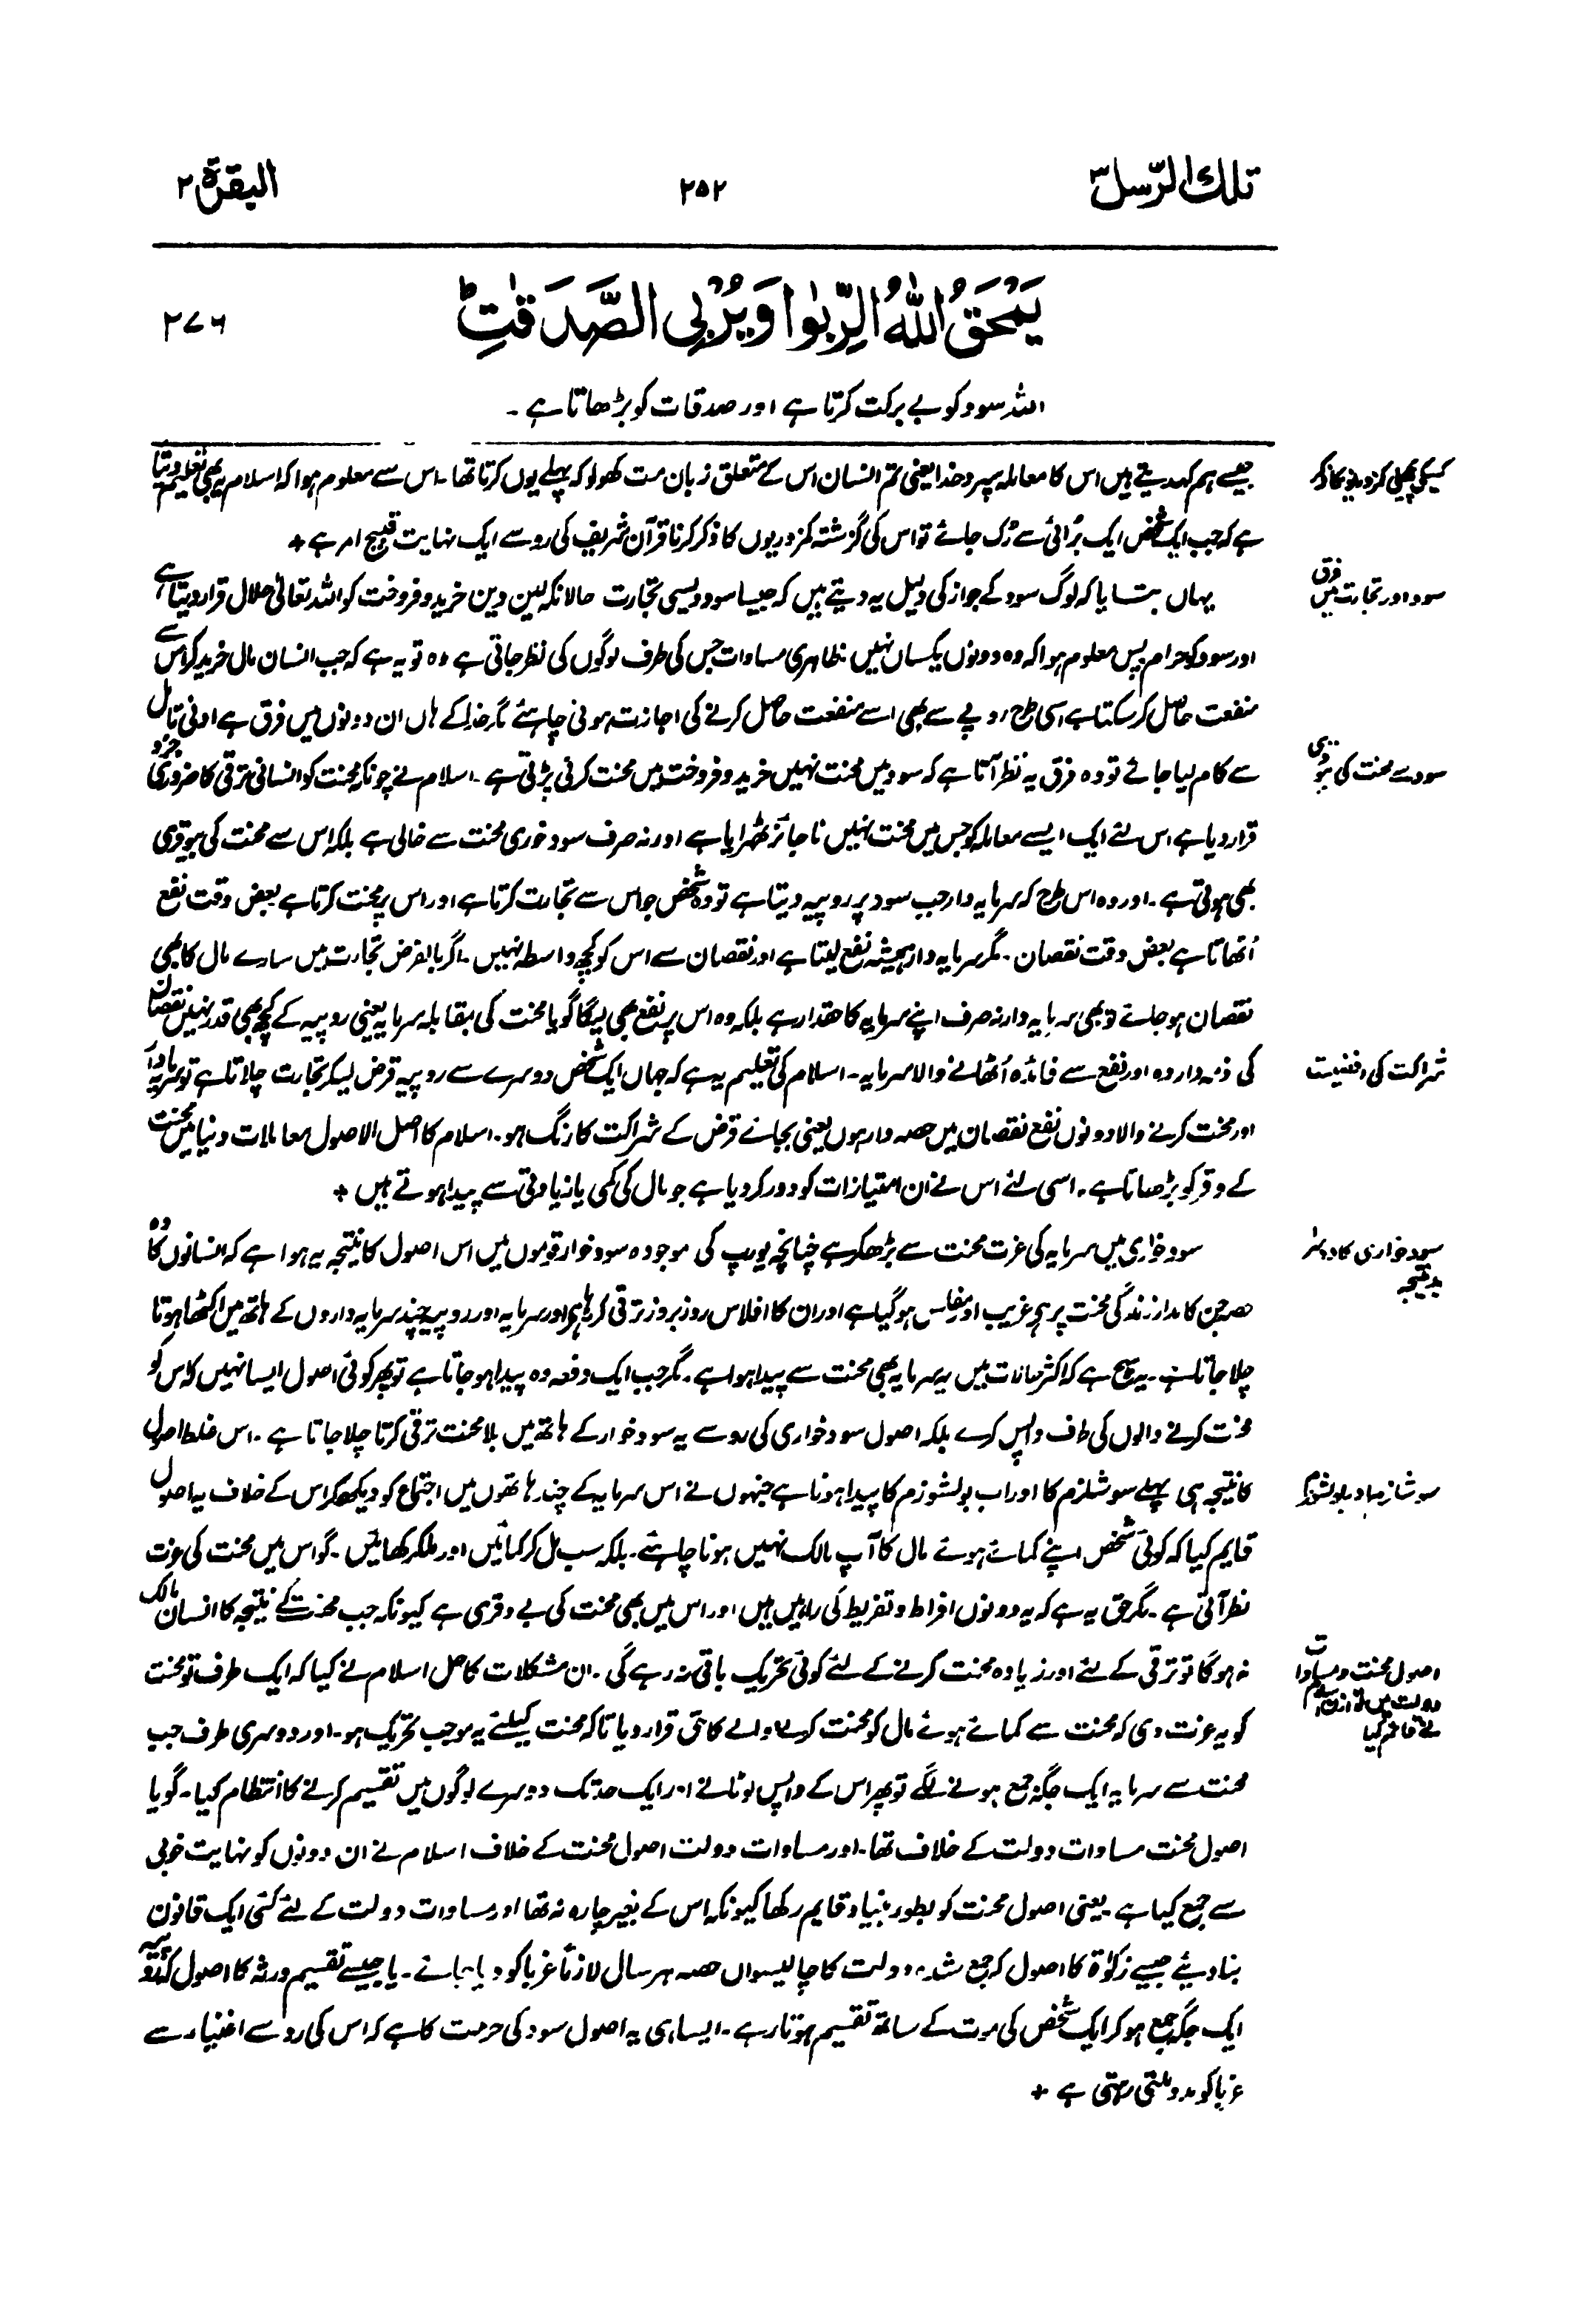 تلك الرّسل ۳
۲۵۲
البقرة ۲
يَمْحَقُ اللّٰهُ الرِّبٰوا وَيُرْبِي الصَّدَقٰتِ ؕ
۲۷۶
اللہ سود کو بے برکت کرتا ہے اور صدقات کو بڑھاتا ہے ۔
جیسے ہم کہدیتے ہیں اس کا معاملہ سپرد خدا یعنی تم انسان اس کے متعلق زبان مت کھولو کہ پہلے یوں کرتا تھا ۔ اس سے معلوم ہوا کہ اسلام یہ بھی تعلیم دیتا
ہے کہ جب ایک شخص ایک بُرائی سے رُک جائے تو اس کی گزشتہ کمزوریوں کا ذکر کرنا قرآن شریف کی رو سے ایک نہایت قبیح امر ہے +
سود اور تجارت میں فرق
یہاں بتایا کہ لوگ سود کے جواز کی دلیل یہ دیتے ہیں کہ جیسا سود ویسی تجارت حالانکہ لین دین خرید و فروخت کو اللہ تعالیٰ حلال قرار دیتا ہے
اور سود کو حرام پس معلوم ہوا کہ وہ دونوں یکساں نہیں ظاہری مساوات جس کی طرف لوگوں کی نظر جاتی ہے وہ تو یہ ہے کہ جب انسان مال خرید کر اس سے
منفعت حاصل کر سکتا ہے اسی طرح روپے سے بھی اسے منفعت حاصل کرنے کی اجازت ہونی چاہئے مگر خدا کے ہاں ان دونوں میں فرق ہے ادنیٰ تامل
سود سے محنت کی بیوقری
سے کام لیا جائے تو وہ فرق یہ نظر آتا ہے کہ سود میں محنت نہیں خرید و فروخت میں محنت کرنی پڑتی ہے ۔ اسلام نے چونکہ محنت کو انسانی ترقی کا ضروری جزو
قرار دیا ہے اس لئے ایک ایسے معاملہ کو جس میں محنت نہیں ناجائز ٹھہرایا ہے اور نہ صرف سود خوری محنت سے خالی ہے بلکہ اس سے محنت کی بیوقری
بھی ہوتی ہے ۔ اور وہ اس طرح کہ سرمایہ دار جب سود پر روپیہ دیتا ہے تو وہ شخص جو اس سے تجارت کرتا ہے اور اس پر محنت کرتا ہے بعض وقت نفع
اُٹھاتا ہے بعض وقت نقصان ۔ مگر سرمایہ دار ہمیشہ نفع لیتا ہے اور نقصان سے اس کو کچھ واسطہ نہیں ۔ اگر بالفرض تجارت میں سارے مال کا بھی
نقصان ہو جائے تو بھی سرمایہ دار نہ صرف اپنے سرمایہ کا حقدار ہے بلکہ وہ اس پر نفع بھی لیگا گویا محنت کی بمقابلہ سرمایہ یعنی روپیہ کے کچھ بھی قدر نہیں نقصان
شراکت کی افضلیت
کی ذمہ دار وہ اور نفع سے فائدہ اُٹھانے والا سرمایہ ۔ اسلام کی تعلیم یہ ہے کہ جہاں ایک شخص دوسرے سے روپیہ قرض لیکر تجارت چلاتا ہے تو سرمایہ دار
اور محنت کرنے والا دونوں نفع نقصان میں حصہ دار ہوں یعنی بجائے قرض کے شراکت کا رنگ ہو ۔ اسلام کا اصل الاصول معاملات دنیا میں محنت
کے وقر کو بڑھانا ہے ۔ اسی لئے اس نے ان امتیازات کو دور کر دیا ہے جو مال کی کمی یا زیادتی سے پیدا ہوتے ہیں +
سود خواری کا دوسرا بد نتیجہ
سود خواری میں سرمایہ کی عزت محنت سے بڑھکر ہے چنانچہ یورپ کی موجودہ سود خوار قوموں میں اس اصول کا نتیجہ یہ ہوا ہے کہ انسانوں کا وہ
حصہ جن کا مدار زندگی محنت پر ہے غریب اور مفلس ہو گیا ہے اور ان کا افلاس روز بروز ترقی کر رہا ہے اور سرمایہ اور روپیہ چند سرمایہ داروں کے ہاتھ میں اکٹھا ہوتا
چلا جاتا ہے ۔ یہ سچ ہے کہ اکثر حالات میں یہ سرمایہ بھی محنت سے پیدا ہوا ہے ۔ مگر جب ایک دفعہ وہ پیدا ہو جاتا ہے تو پھر کوئی اصول ایسا نہیں کہ اس کو
محنت کرنے والوں کی طرف واپس کرے بلکہ اصول سود خواری کی رو سے یہ سود خوار کے ہاتھ میں بلا محنت ترقی کرتا چلا جاتا ہے ۔ اس غلط اصول
کا نتیجہ ہی پہلے سوشلزم کا اور اب بولشوزم کا پیدا ہونا ہے جنہوں نے اس سرمایہ کے چند ہاتھوں میں اجتماع کو دیکھ کر اس کے خلاف یہ اصول
قایم کیا کہ کوئی شخص اپنے کمائے ہوئے مال کا آپ مالک نہیں ہونا چاہئے ۔ بلکہ سب مل کر کمائیں اور ملکر کھائیں ۔ گو اس میں محنت کی عزت
نظر آتی ہے ۔ مگر حق یہ ہے کہ یہ دونوں افراط و تفریط کی راہیں ہیں اور اس میں بھی محنت کی بے وقری ہے کیونکہ جب محنت کے نتیجہ کا انسان مالک
اصول محنت و مساوات
دولت میں توازن اسلام
نے قائم کیا
نہ ہوگا تو ترقی کے لئے اور زیادہ محنت کرنے کے لئے کوئی تحریک باقی نہ رہے گی ۔ ان مشکلات کا حل اسلام نے کیا کہ ایک طرف تو محنت
کو یہ عزت دی کہ محنت سے کمائے ہوئے مال کو محنت کرنے والے کا حق قرار دیا تاکہ محنت کیلئے یہ موجب تحریک ہو ۔ اور دوسری طرف جب
محنت سے سرمایہ ایک جگہ جمع ہونے لگے تو پھر اس کے واپس لوٹانے اور ایک حد تک دوسرے لوگوں میں تقسیم کرنے کا انتظام کیا ۔ گویا
اصول محنت مساوات دولت کے خلاف تھا ۔ اور مساوات دولت اصول محنت کے خلاف اسلام نے ان دونوں کو نہایت خوبی
سے جمع کیا ہے یعنی اصول محنت کو بطور بنیاد قایم رکھا کیونکہ اس کے بغیر چارہ نہ تھا اور مساوات دولت کے لئے کئی ایک قانون
بنا دیئے جیسے زکوٰۃ کا اصول کہ جمع شدہ دولت کا چالیسواں حصہ ہر سال لازماً غربا کو دیا جائے ۔ یا جیسے تقسیم ورثہ کا اصول کہ روپیہ
ایک جگہ جمع ہو کر ایک شخص کی موت کے ساتھ تقسیم ہوتا رہے ۔ ایسا ہی یہ اصول سود کی حرمت کا ہے کہ اس کی رو سے اغنیاء سے
غربا کو مدد ملتی رہتی ہے +